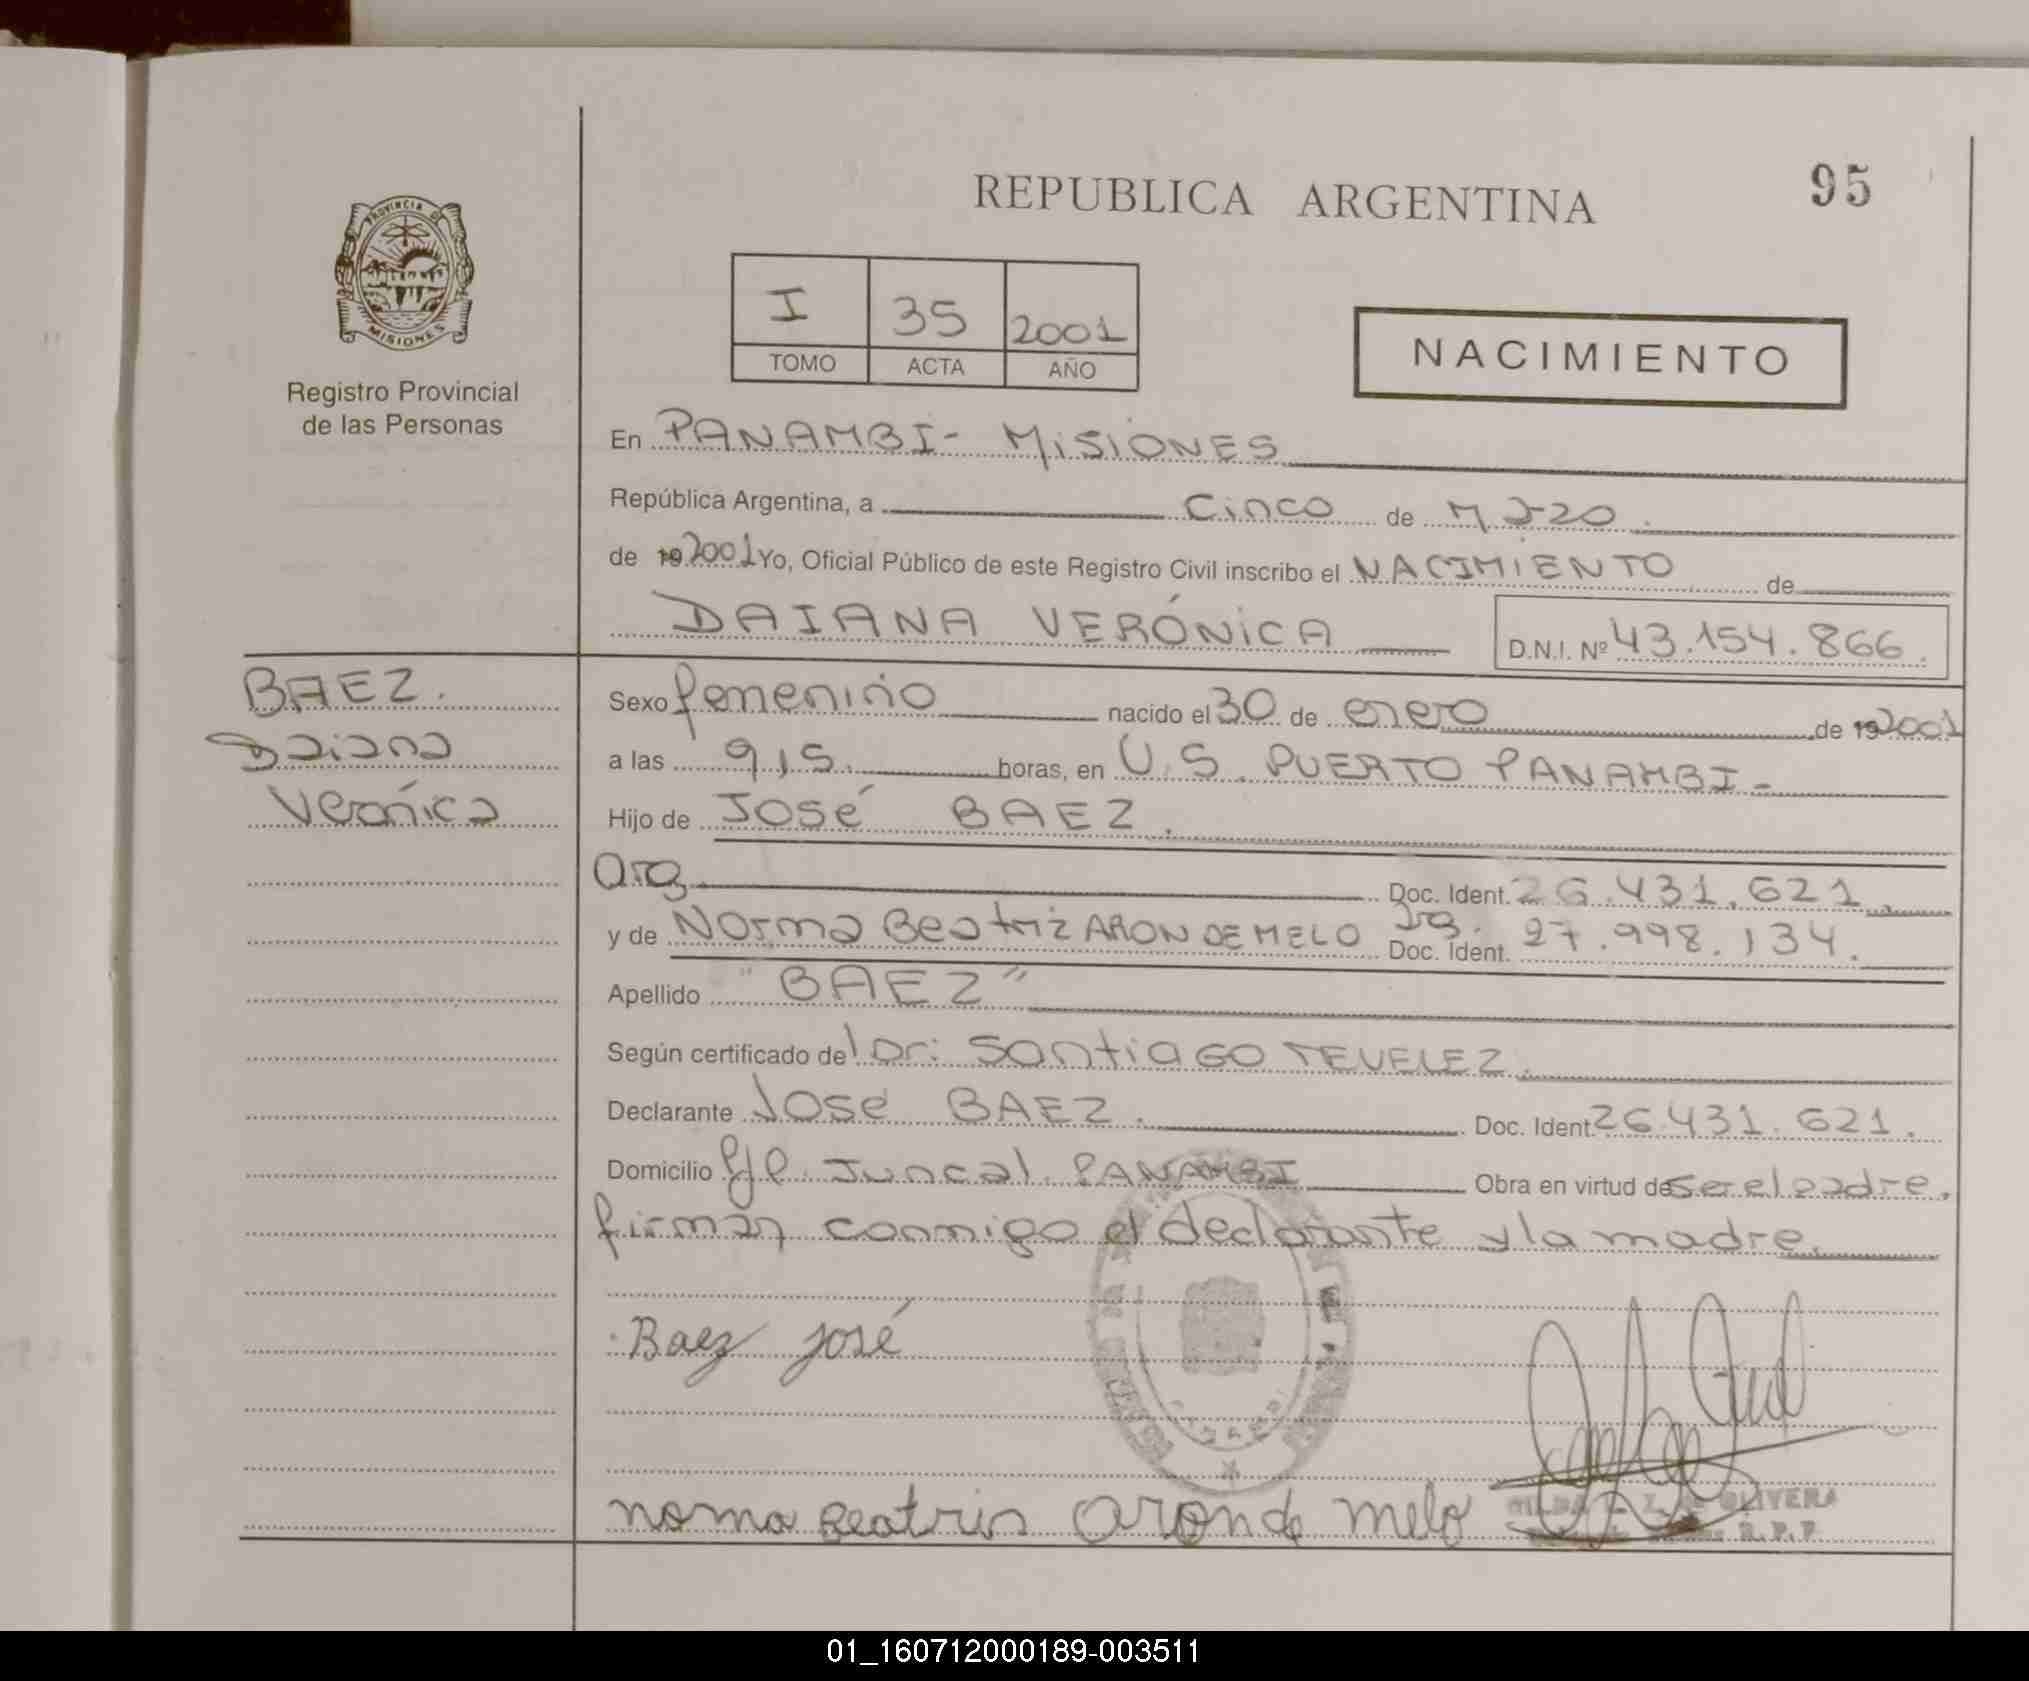 REPUBLICA ARGENTINA
95
PROVINCIA DE
MISIONES
Registro Provincial
de las Personas
I 35 2001
TOMO ACTA AÑO
NACIMIENTO
En PANAMBI - MISIONES
República Argentina, a Cinco de Mazo
de 19 2001 Yo, Oficial Público de este Registro Civil inscribo el NACIMIENTO de
DAIANA VERÓNICA D.N.I. Nº 43.154.866.
BAEZ.
Daiana
Verónica
Sexo femenino nacido el 30 de enero de 19 2001
a las 9,15. horas, en U.S. PUERTO PANAMBI -
Hijo de José BAEZ.
arg. Doc. Ident. 26.431.621.
y de Norma Beatriz ARON DE MELO arg. Doc. Ident. 27.998.134.
Apellido "BAEZ"
Según certificado del Dr: Santiago TEVELEZ.
Declarante José BAEZ. Doc. Ident. 26.431.621.
Domicilio Juncal. PANAMBI Obra en virtud de ser el padre.
firman conmigo el declarante y la madre.
Baez José
norma Beatris aronde melo
OLIVERA
R.P.P.
01_160712000189-003511